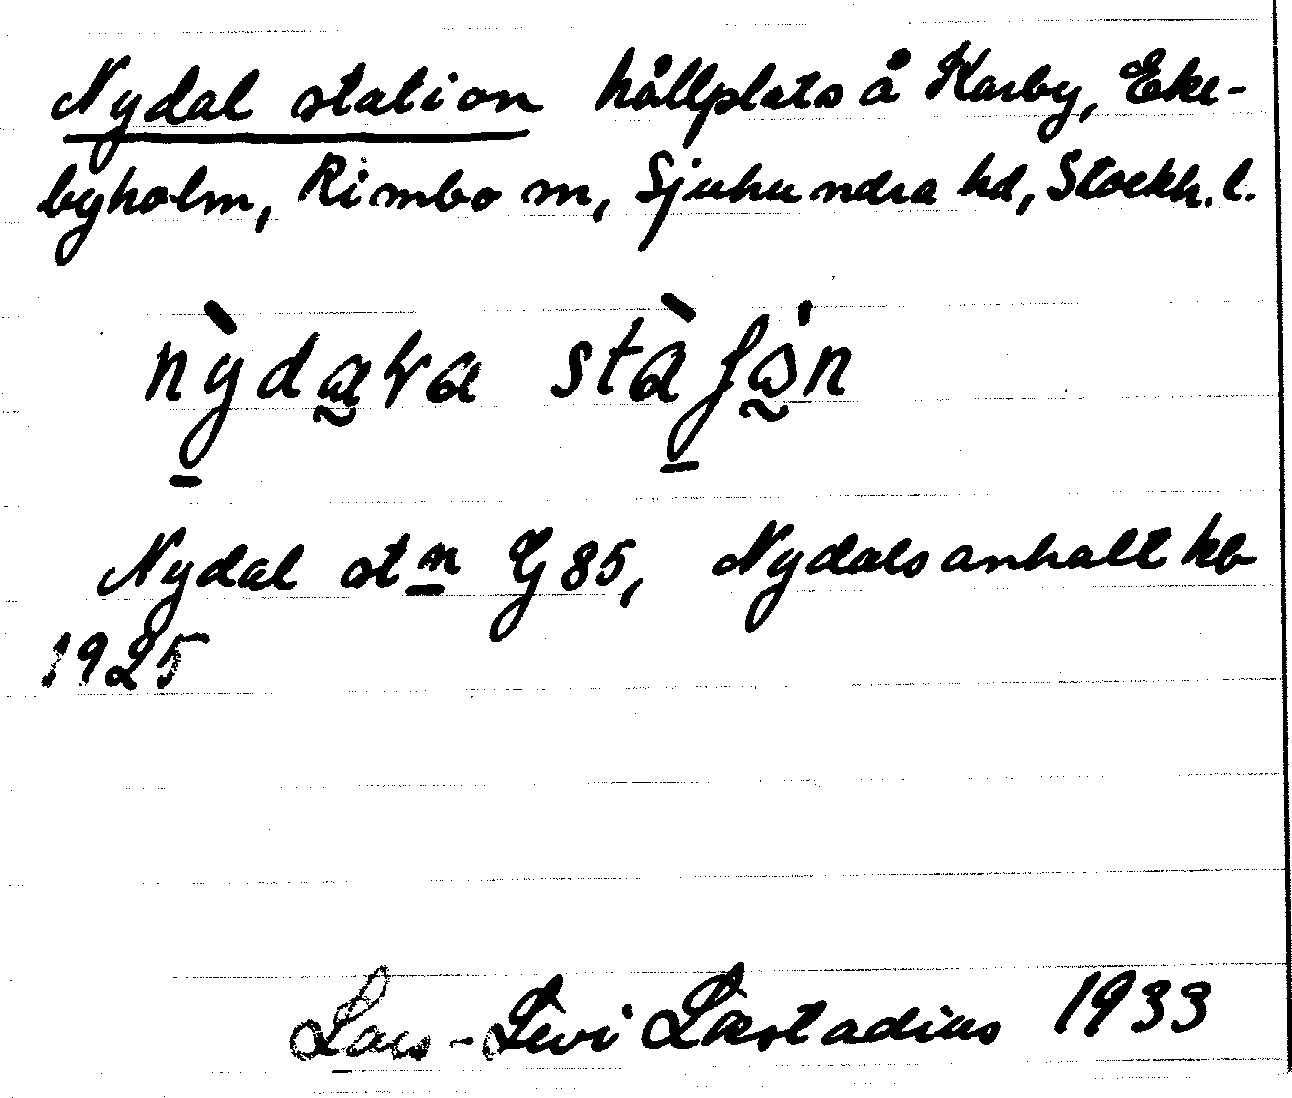 Nydal station hållplats å Karby, Eke-
byholm, Rimbo sn, Sjuhundra hd, Stockh. l.
nỳdava stàʃón
Nydal stn G 85, Nydals anhalt kb
1925
Lars-Levi Læstadius 1933